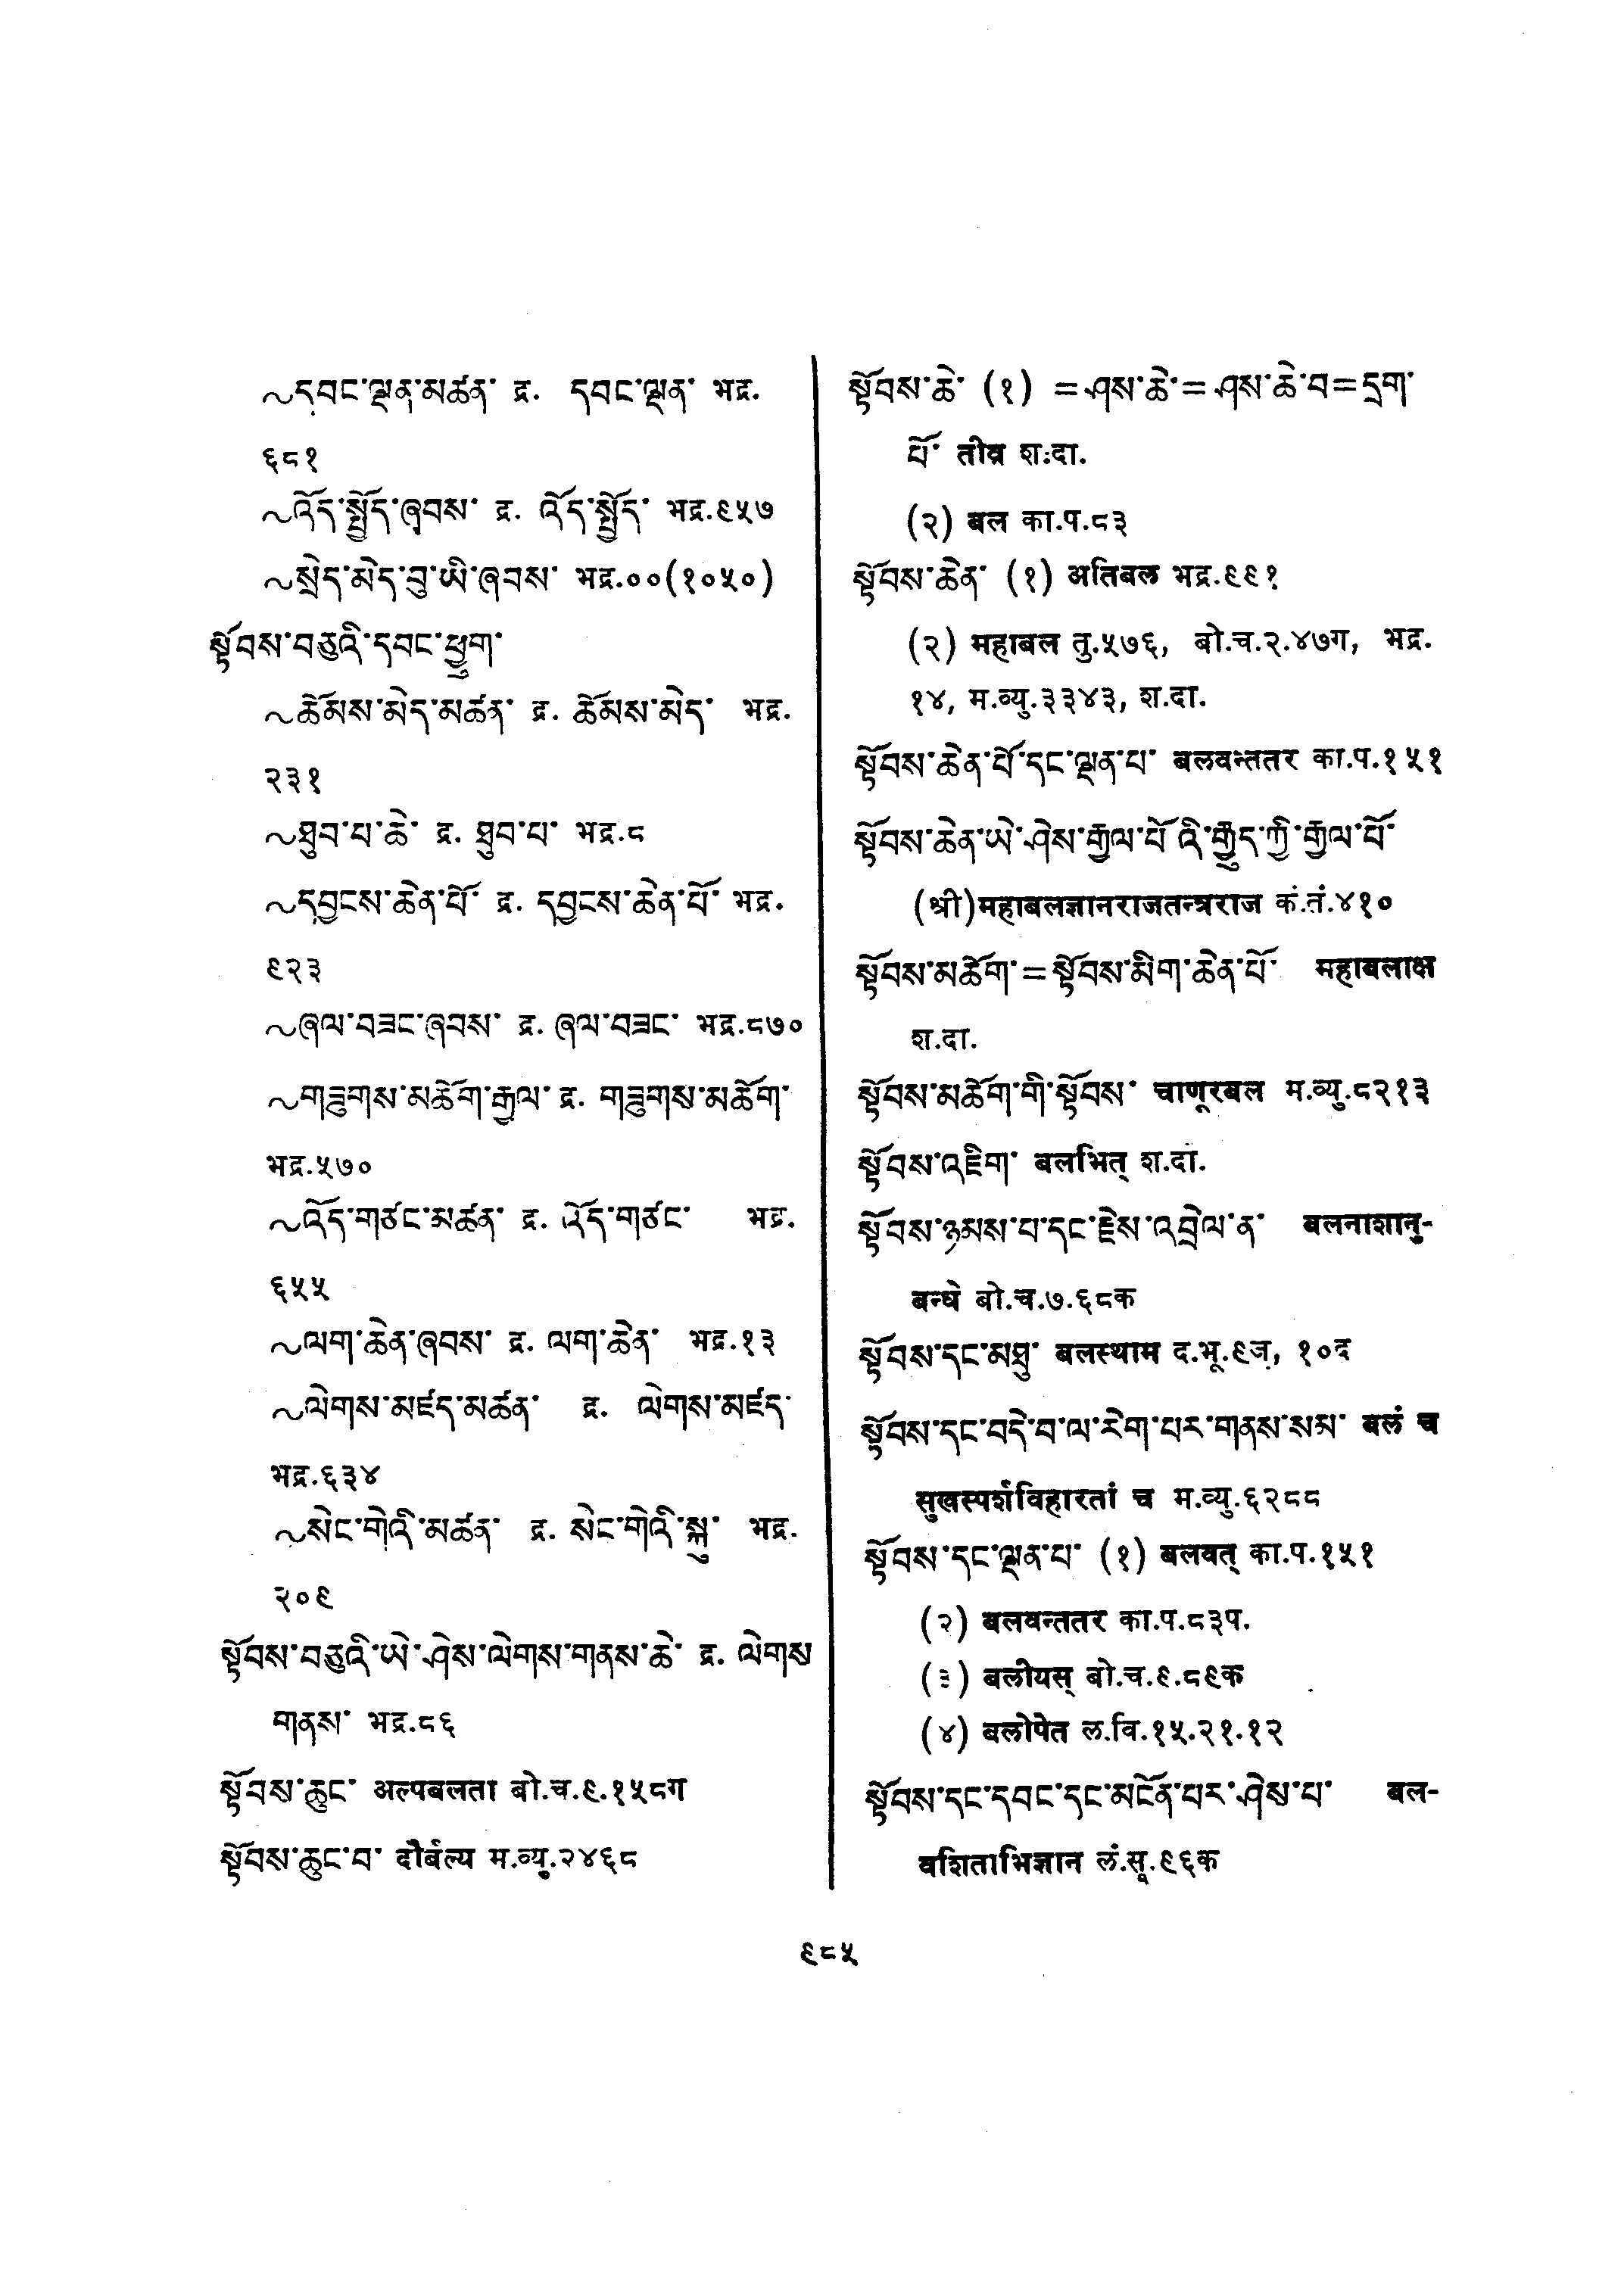 ~དབང་ལྡན་མཚན་ द्र. དབང་ལྡན་ भद्र.
६८१
~འོད་སྤྲོད་ཞབས་ द्र. འོད་སྤྲོད་ भद्र.९५७
~སྲེད་མེད་བུ་ཡི་ཞབས་ भद्र.००(१०५०)
སྟོབས་བཅུའི་དབང་ཕྱུག་
~ཆོམས་མེད་མཚན་ द्र. ཆོམས་མེད་ भद्र.
२३१
~ཐུབ་པ་ཆེ་ द्र. ཐུབ་པ་ भद्र.८
~དབྱངས་ཆེན་པོ་ द्र. དབྱངས་ཆེན་པོ་ भद्र.
९२३
~ཞལ་བཟང་ཞབས་ द्र. ཞལ་བཟང་ भद्र.८७०
~གཟུགས་མཆོག་རྒྱལ་ द्र. གཟུགས་མཆོག་
भद्र.५७०
~འོད་གཙང་མཚན་ द्र. འོད་གཙང་ भद्र.
६५५
~ལག་ཆེན་ཞབས་ द्र. ལག་ཆེན་ भद्र.१३
~ལེགས་མཛད་མཚན་ द्र. ལེགས་མཛད་
भद्र.६३४
~སེང་གེའི་མཚན་ द्र. སེང་གེའི་སྐུ་ भद्र.
२०९
སྟོབས་བཅུའི་ཡེ་ཤེས་ལེགས་གནས་ཆེ་ द्र. ལེགས
གནས་ भद्र.८६
སྟོབས་ཆུང་ अल्पबलता बो.च.९.१५८ग
སྟོབས་ཆུང་བ་ दौर्बल्य म.व्यु.२४६८
སྟོབས་ཆེ་ (१) =ཤས་ཆེ་=ཤས་ཆེ་བ=དྲག་
པོ་ तीव्र श.दा.
(२) बल का.प.८३
སྟོབས་ཆེན་ (१) अतिबल भद्र.९९१
(२) महाबल तु.५७६, बो.च.२.४७ग, भद्र.
१४, म.व्यु.३३४३, श.दा.
སྟོབས་ཆེན་པོ་དང་ལྡན་པ་ बलवन्ततर का.प.१५१
སྟོབས་ཆེན་ཡེ་ཤེས་རྒྱལ་པོ འི་རྒྱུད་ཀྱི་རྒྱལ་པོ་
(श्री)महाबलज्ञानराजतन्त्रराज कं.तं.४१०
སྟོབས་མཆོག་=སྟོབས་མིག་ཆེན་པོ་ महाबलाक्ष
श.दा.
སྟོབས་མཆོག་གི་སྟོབས་ चाणूरबल म.व्यु.८२१३
སྟོབས་འཇིག་ बलभित् श.दा.
སྟོབས་ཉམས་པ་དང་རྗེས་འབྲེལ་ན་ बलनाशानु-
बन्धे बो.च.७.६८क
སྟོབས་དང་མཐུ་ बलस्थाम द.भू.९ज, १०द
སྟོབས་དང་བདེ་བ་ལ་རེག་པར་གནས་སམ་ बलं च
सुखस्पर्शविहारतां च म.व्यु.६२८८
སྟོབས་དང་ལྡན་པ་ (१) बलवत् का.प.१५१
(२) बलवन्ततर का.प.८३प.
(३) बलीयस् बो.च.९.८९क
(४) बलोपेत ल.वि.१५.२१.१२
སྟོབས་དང་དབང་དང་མངོན་པར་ཤེས་པ་ बल-
वशिताभिज्ञान लं.सू.९६क
९८५